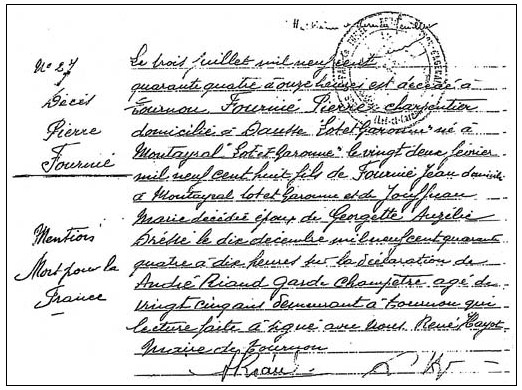 N° 27
Décès
Pierre
Fournié
Mention
Mort pour la
France
Le trois juillet mil neuf cent
quarante quatre à onze heures est décédé à
Tournon Fournié Pierre charpentier
domicilié à Dausse Lot et Garonne né à
Montayral "Lot et Garonne" le vingt deux février
mil neuf cent huit fils de Fournié Jean domicilié
à Montayral Lot et Garonne et de
Marie décédée époux de Georgette Aurélie
Dressé le dix décembre mil neuf cent quarante
quatre à dix heures sur la déclaration de
André Riaud Garde Champêtre agé de
vingt cinq ans demeurant à Tournon qui
lecture faite à signé avec nous René Hayot
Maire de Tournon